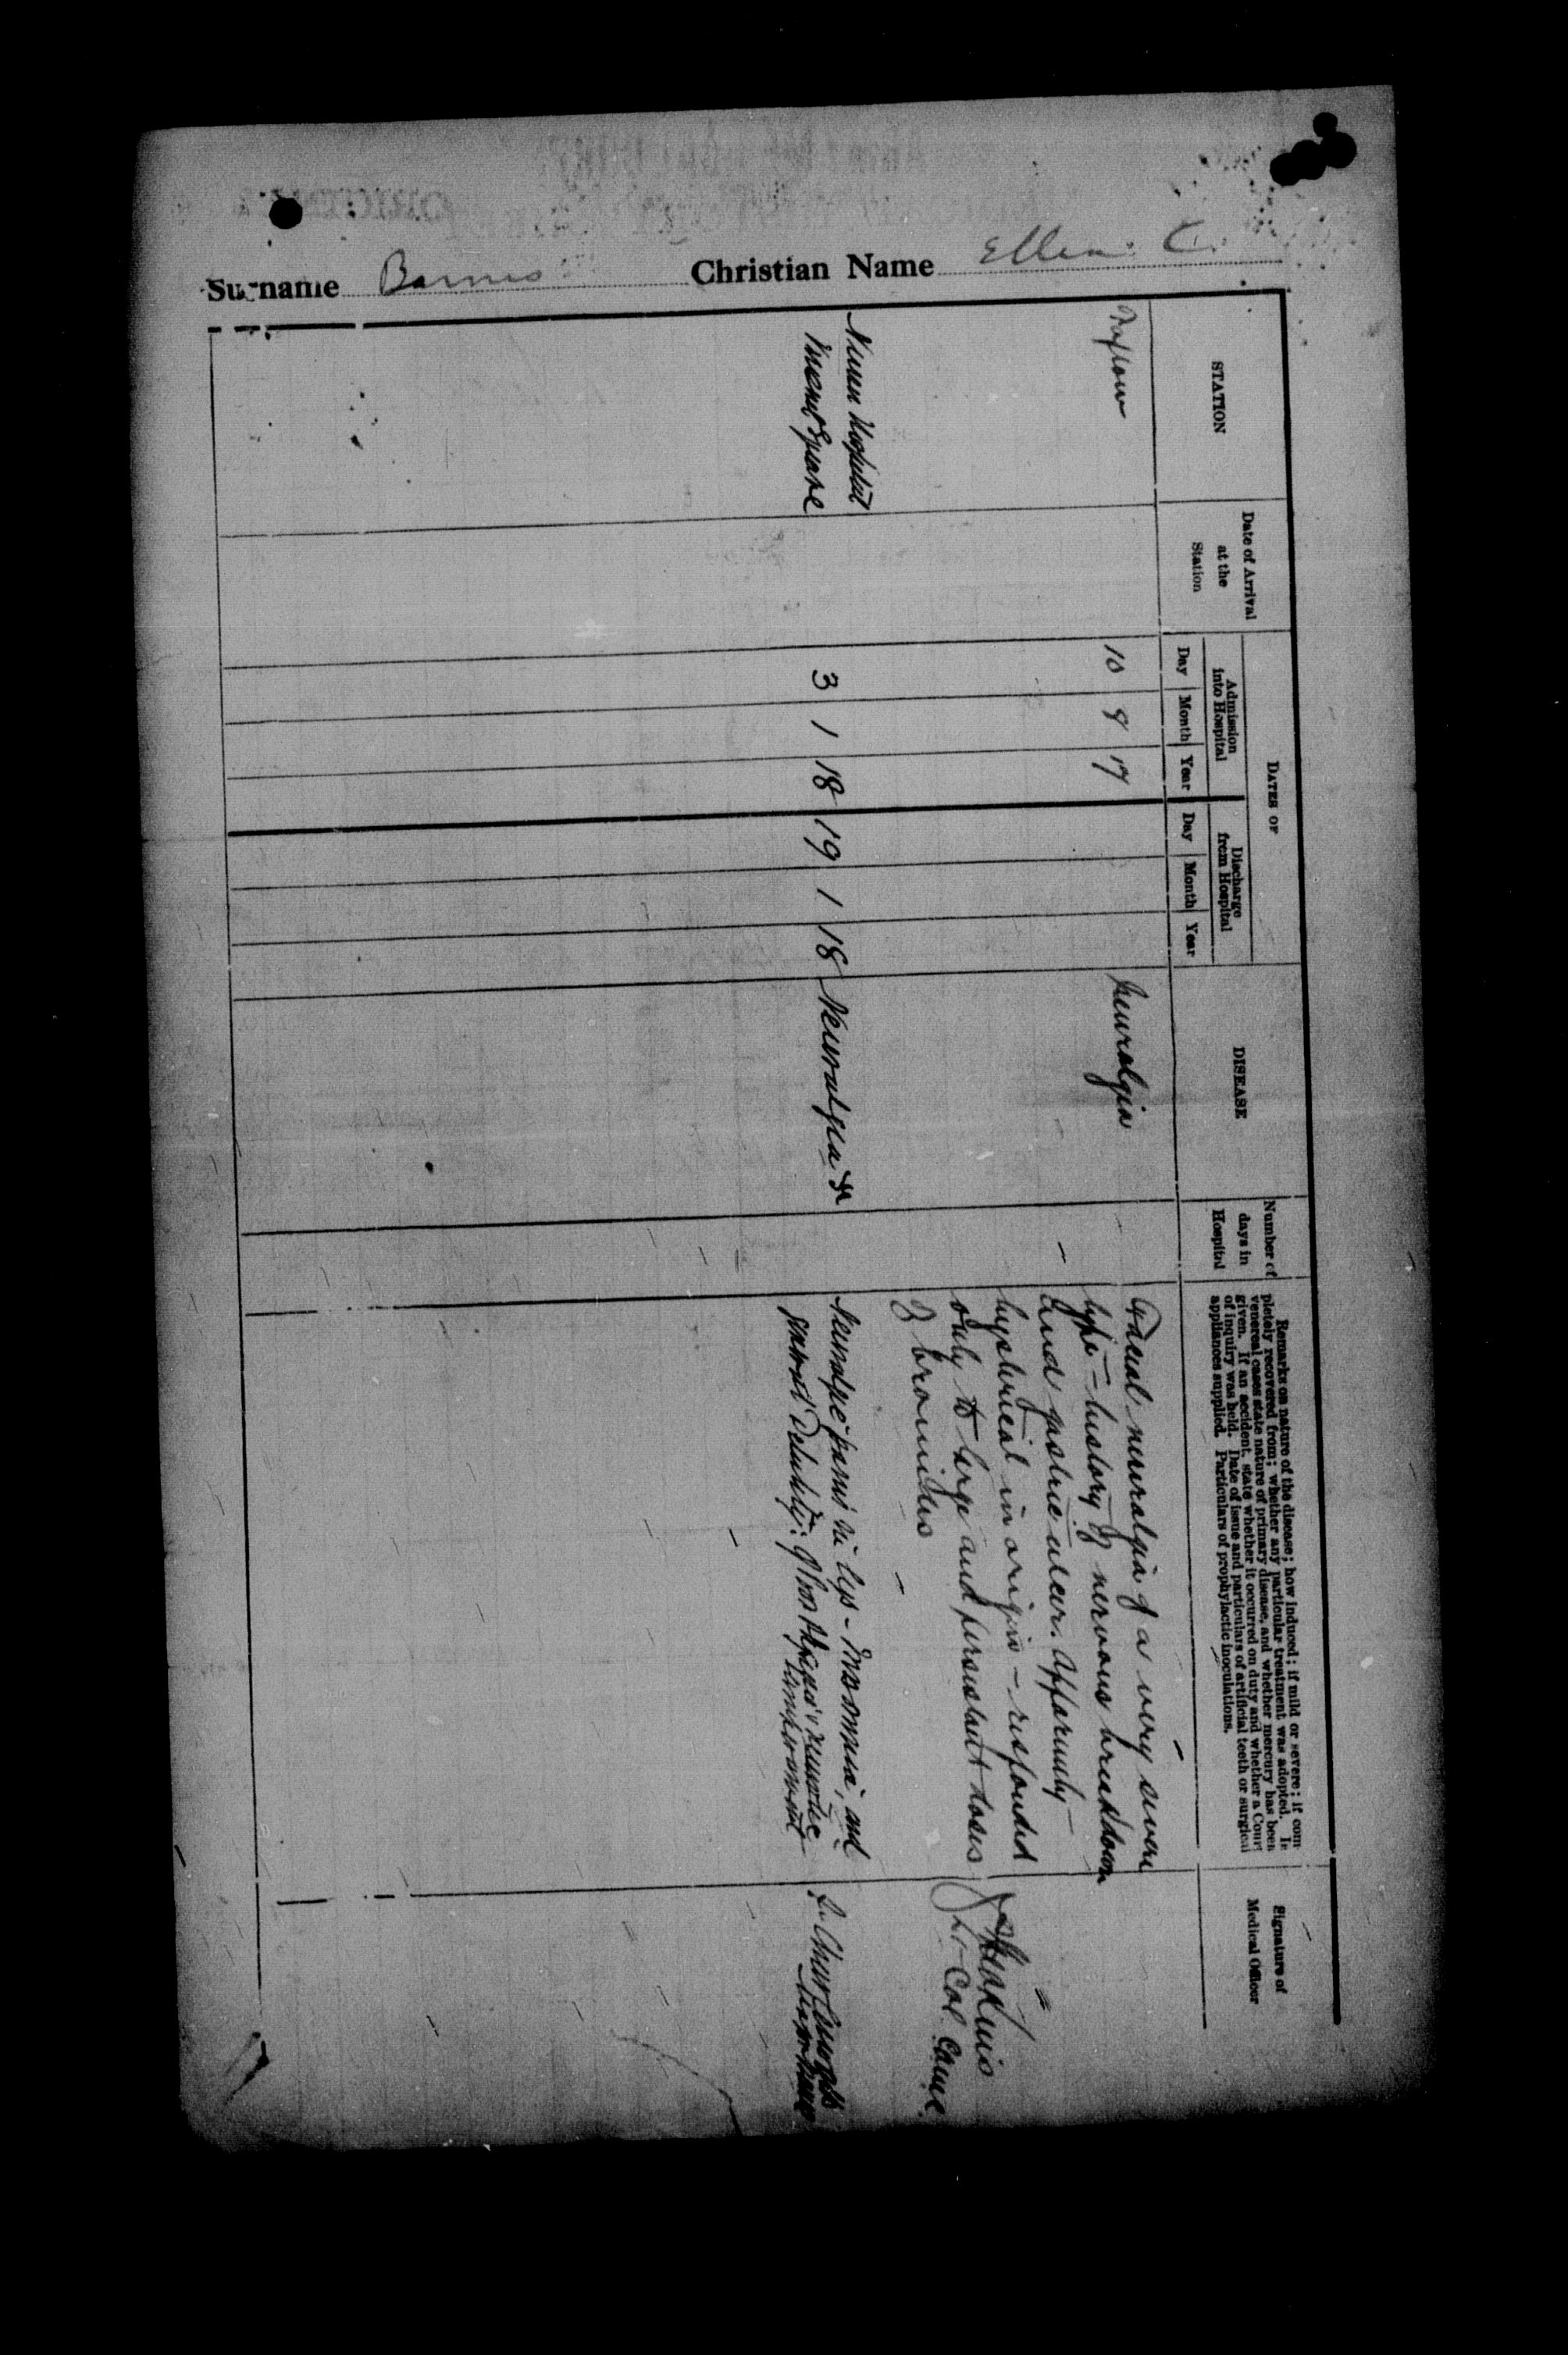 Surname Barnes Christian Name Ellen C.
STATION
Date of Arrival
at the
Station
DATES OF
Admission
into Hospital
Discharge
from Hospital
Day Month Year Day Month Year
DISEASE
Number of
days in
Hospital
Remarks on nature of the disease; how induced; if mild or severe; if com
pletely recovered from; whether any particular treatment was adopted. In
venereal cases state nature of primary disease, and whether mercury has been
given. If an accident, state whether it occurred on duty and whether a Court
of inquiry was held. Date of issue and particulars of artificial teeth or surgical
appliances supplied. Particulars of prophylactic inoculations.
Signature of
Medical Officer
Taplow 10 9 17 Neuralgia
Facial neuralgia of a very severe
type – history of nervous breakdown
and gastric ulcer. Apparently
hysterical in origin – responded
only to large and persistent doses
of bromides
Lt-Col. CAMC.
Hospital
Square 3 1 18 19 1 18 Neuralgia
Neuralgic pains in legs – Insomnia, and
general Debility. neurotic
temperament